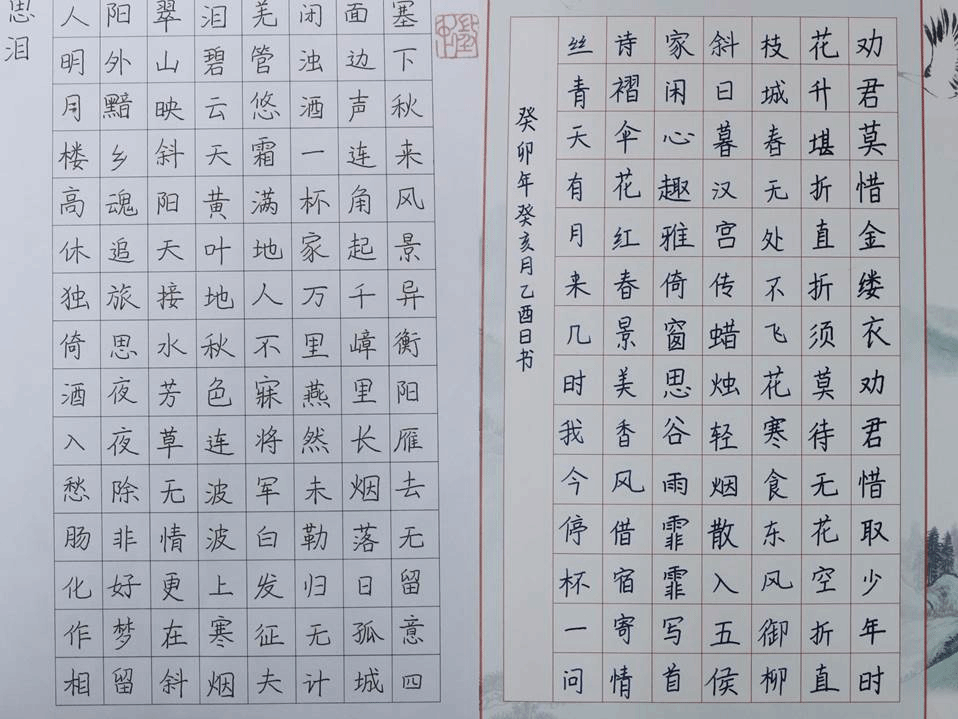 劝君莫惜金缕衣劝君惜取少年时
花升堪折直折须莫待无花空折直
枝城春无处不飞花寒食东风御柳
斜日暮汉宫传蜡烛轻烟散入五侯
家闲心趣雅倚窗思谷雨霏霏写首
诗褶伞花红春景美香风借宿寄情
丝青天有月来几时我今停杯一问
癸卯年癸亥月乙酉日书
塞下秋来风景异衡阳雁去无留意四
面边声连角起千嶂里长烟落日孤城
闭浊酒一杯家万里燕然未勒归无计
羌管悠霜满地人不寐将军白发征夫
泪碧云天黄叶地秋色连波波上寒烟
翠山映斜阳天接水芳草无情更在斜
阳外黯乡魂追旅思夜夜除非好梦留
人明月楼高休独倚酒入愁肠化作相
思泪